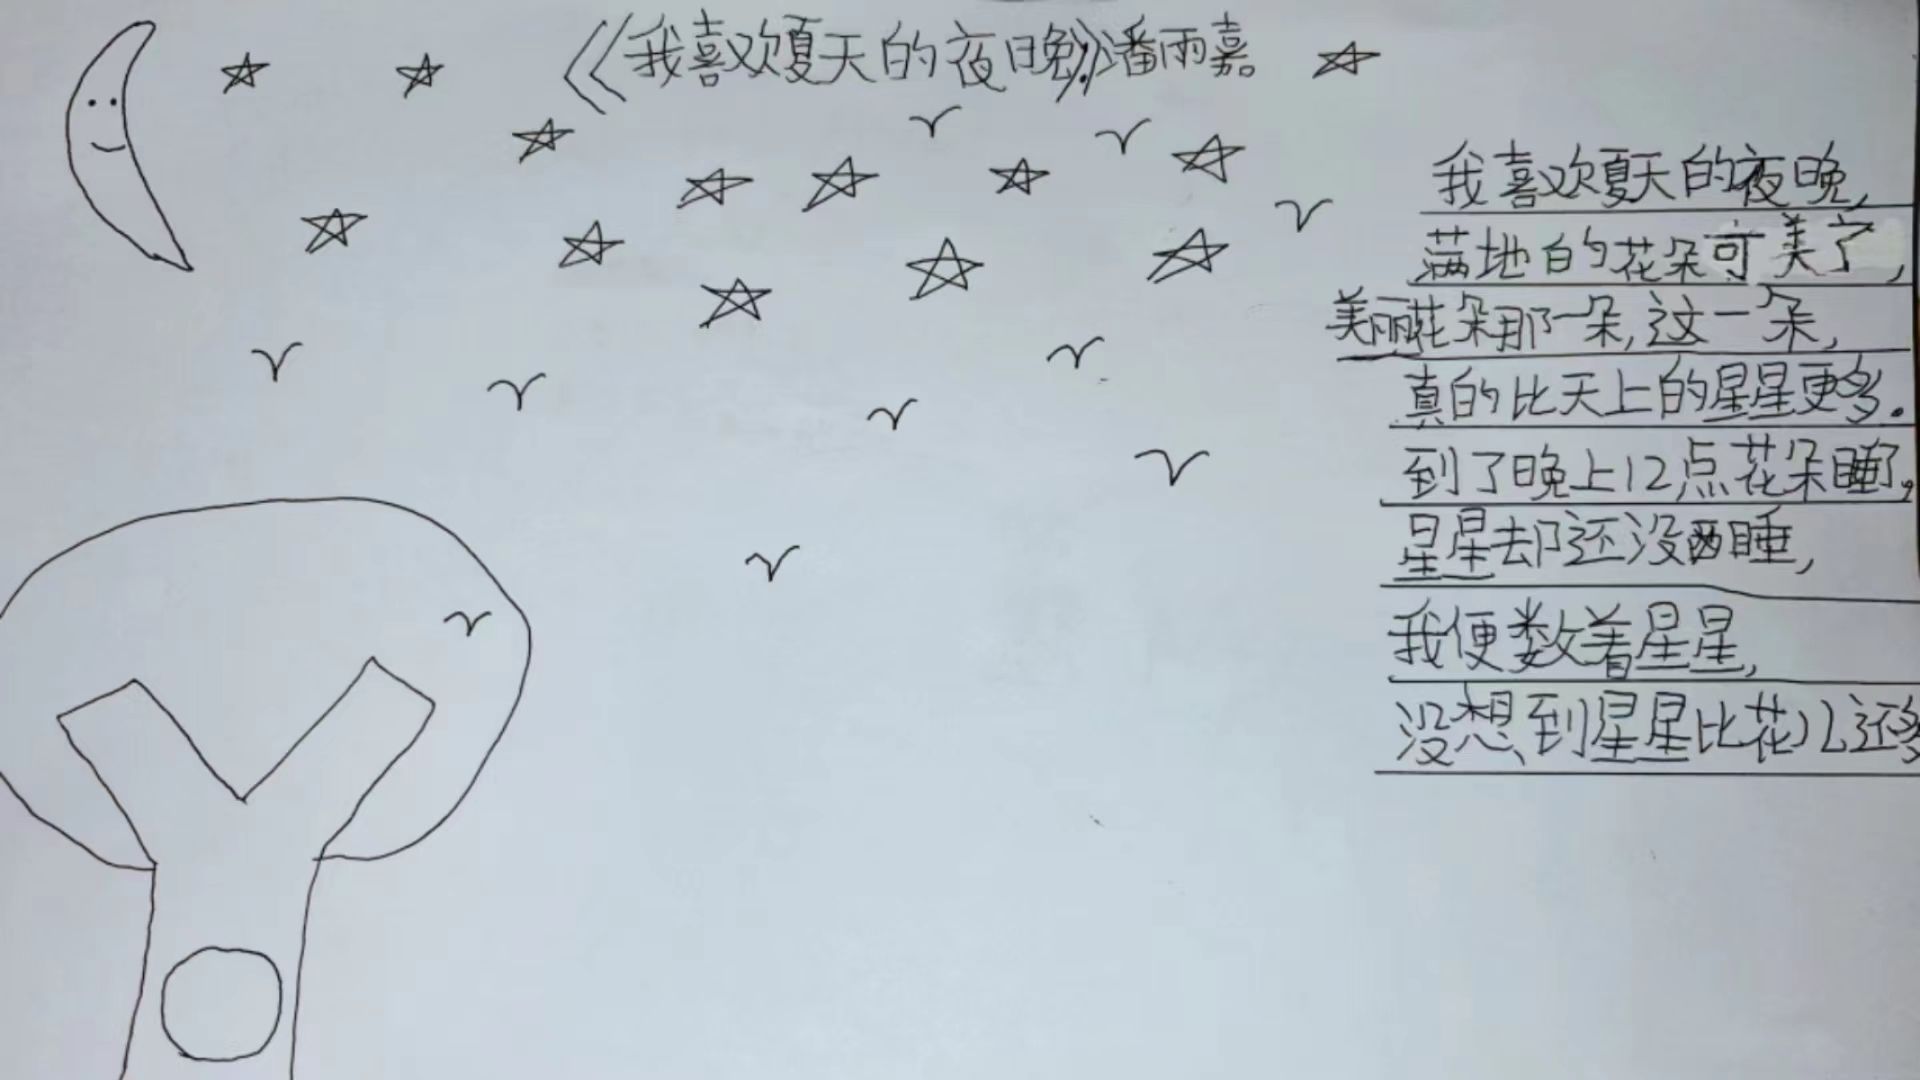 《我喜欢夏天的夜晚》潘雨嘉
我喜欢夏天的夜晚,
满地的花朵可美了,
美丽花朵那一朵,这一朵,
真的比天上的星星更多.
到了晚上12点花朵睡了。
星星却还没睡,
我便数着星星,
没想到星星比花儿还多